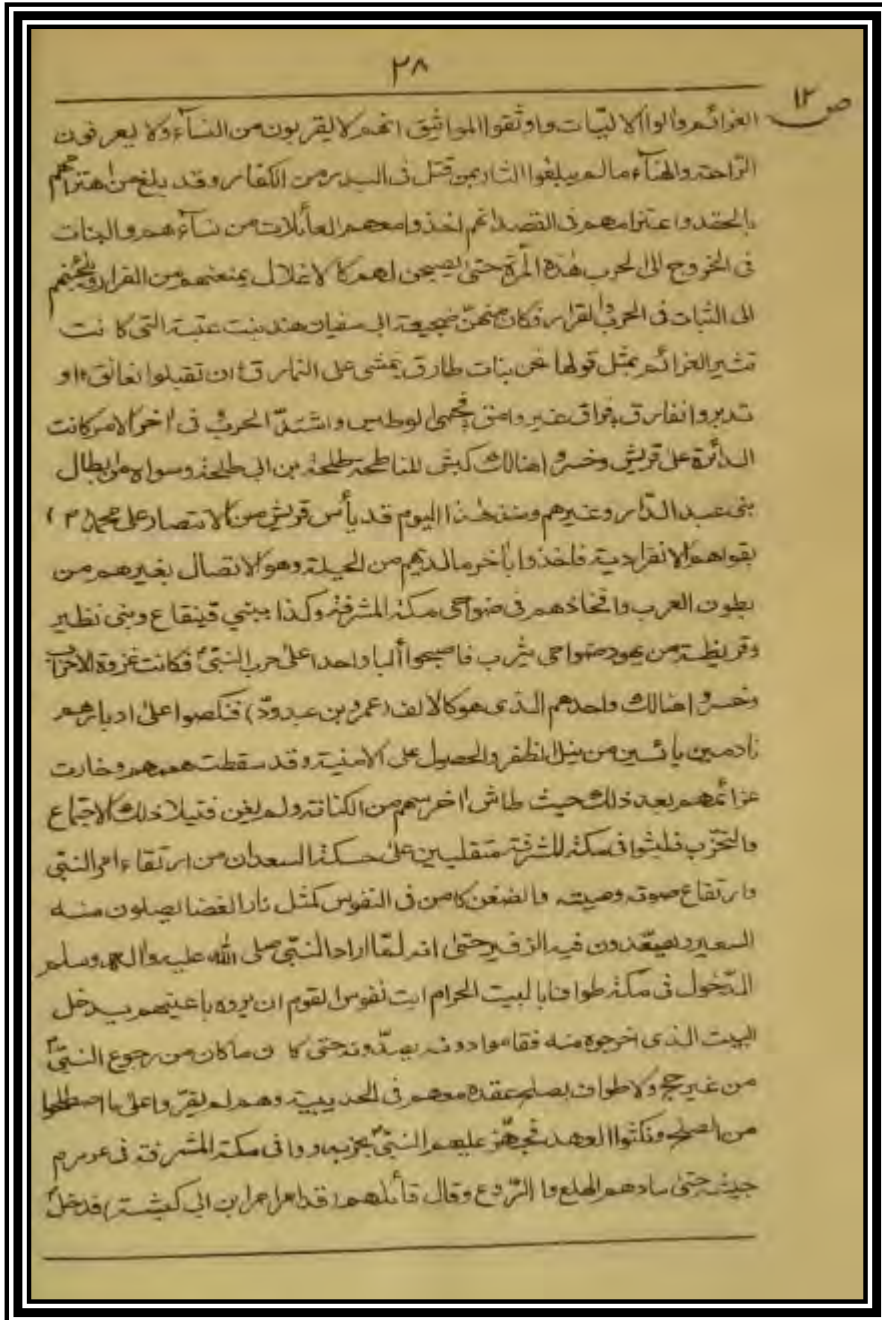 ٢٨
ص ١٢
العزائم والوا الاليّات واوثقوا المواثيق انهم لا يقربون من النسآء ولا يعرفون
الرّاحة والهنآء مالم يبلغوا الثار بمن قتل في البدر من الكفار وقد بلغ من
بالحقد واعتزامهم في القصد انهم اخذوا معهم العائلات من نسآءهم والبنات
في الخروج الى الحرب هٰذه المرّة حتىٰ يصبحن لهم كالاغلال يمنعنهم من الفرار ويلجئنهم
الى الثبات في الحرب والقرار فكان منهنّ ضجيعة ابى سفيان هند بنت عتبة التى كانت
تثير العزائم بمثل قولها نحن بنات طارق نمشى على النمارق ان تقبلوا نعانق او
تدبروا نفارق فراق غير وامق فحمى الوطيس واشتدّ الحرب فى اخر الامر كانت
الدائرة على قريش وخسروا هنالك كبش طلحة بن ابى طلحة وسواه من ابطال
بنى عبد الدّار وغيرهم ومنذ هٰذا اليوم قد يأس قريش من الانتصار على محمد (٣)
بقواهم الانفرادية فاخذوا باٰخر ما لديهم من الحيلة وهو الاتصال بغيرهم من
بطون العرب وافخاذهم فى ضواحى مكة المشرفة وكذا ببني قينقاع وبنى نظير
وقريظة من يهود ضواحى يثرب فاصبحوا ألبا واحدا علىٰ حرب النبىّ فكانت غزوة الاحزاب
وخسروا هنالك واحدهم الذى هو كالالف (عمرو بن عبدودّ) فنكصوا علىٰ ادبارهم
نادمين يائسين من نيل الظفر والحصول على الامنية وقد سقطت هممهم وخارت
عزائمهم بعد ذلك حيث طاش اٰخر سهم من الكنانة ولم يغن فتيلا ذلك الاجتماع
والتحزّب فلبثوا فى مكة المشرفة متقلبين علىٰ حسكة السعدان من ارتقاء امر النبىّ
وارتفاع صوته وصيته والضغن كامن فى النفوس كمثل نار الغضا يصلون منه
السعير ويصعّدون فيه الزفير حتىٰ انه لمّا اراد النبىّ صلى الله عليه واٰله وسلم
الدّخول فى مكة طوافا بالبيت الحرام ابت نفوس القوم ان يروه باعينهم يدخل
البيت الذى اخرجوه منه فقاموا دونه يصدّونه حتى كان ما كان من رجوع النبىّ
من غير حج ولا طواف بصلح عقده معهم فى الحديبية وهم لم يقرّوا علىٰ ما اصطلحوا
من الصلح ونكثوا العهد فجهّز عليهم النبىّ بحزبه ووافى مكة المشرفة فى عرمرم
جيش حتىٰ سادهم الهلع والرّوع وقال قائلهم (قد امر امر ابن ابى كبشة) فدخل